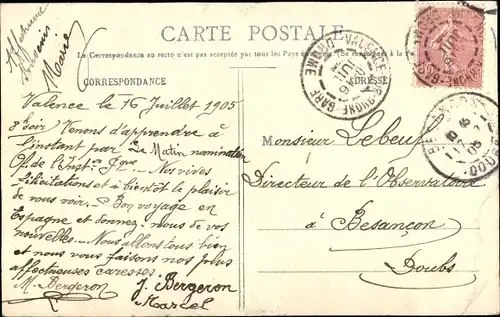 CARTE POSTALE
La Correspondance au recto n'est pas acceptée par tous les Pays
CORRESPONDANCE
ADRESSE
Marie
Valence le 16 Juillet 1905
8h soir) Venons d'apprendre à
l'instant par Le Matin nomination
Of. de l'Inst on Pque Nos vives
félicitations et à bientôt le plaisir
de vous voir. - Bon voyage en
Espagne et donnez-nous de vos
nouvelles. - Nous allons tous bien
et nous vous faisons nos plus
affectueuses caresses.
M. Bergeron
J. Bergeron
Marcel
Monsieur Lebeuf
Directeur de l'Observatoire
à Besançon
Doubs
VALENCE-SUR-RHONE GARE
DROME
BESANCON
DOUBS